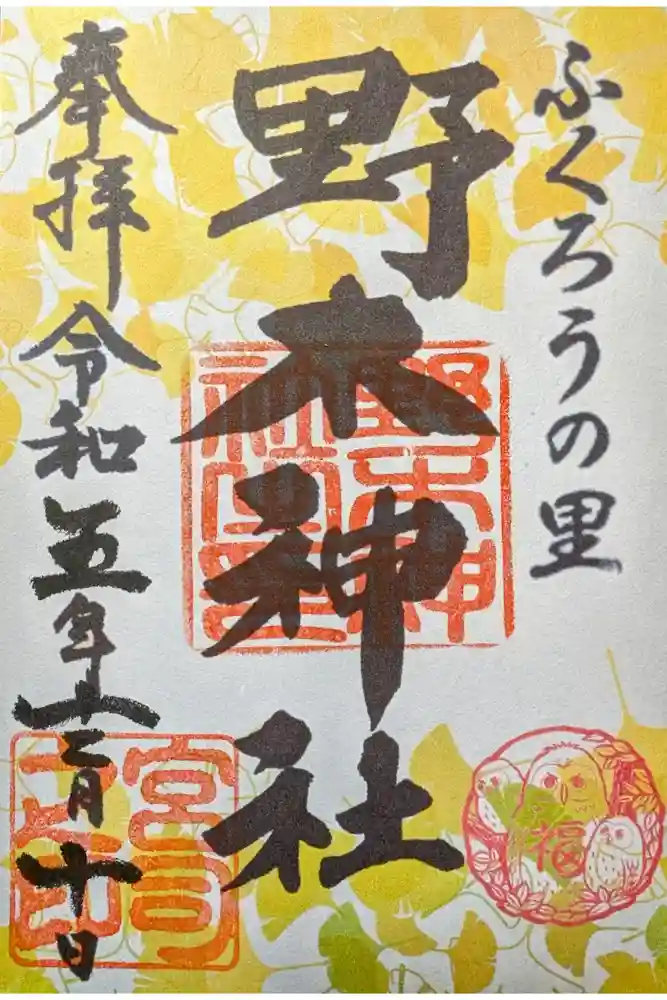 ふくろうの里
野木神社
奉拝 令和五年十二月十日
野木神
社之印
宮司
之印
福